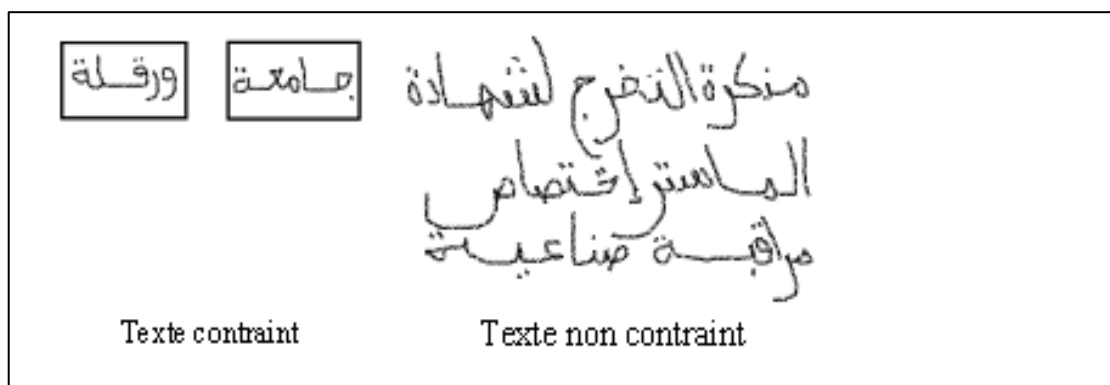 جامعة ورقلة
مذكرة التخرج لشهادة
الماستر إختصاص
مراقبة صناعية
Texte contraint
Texte non contraint